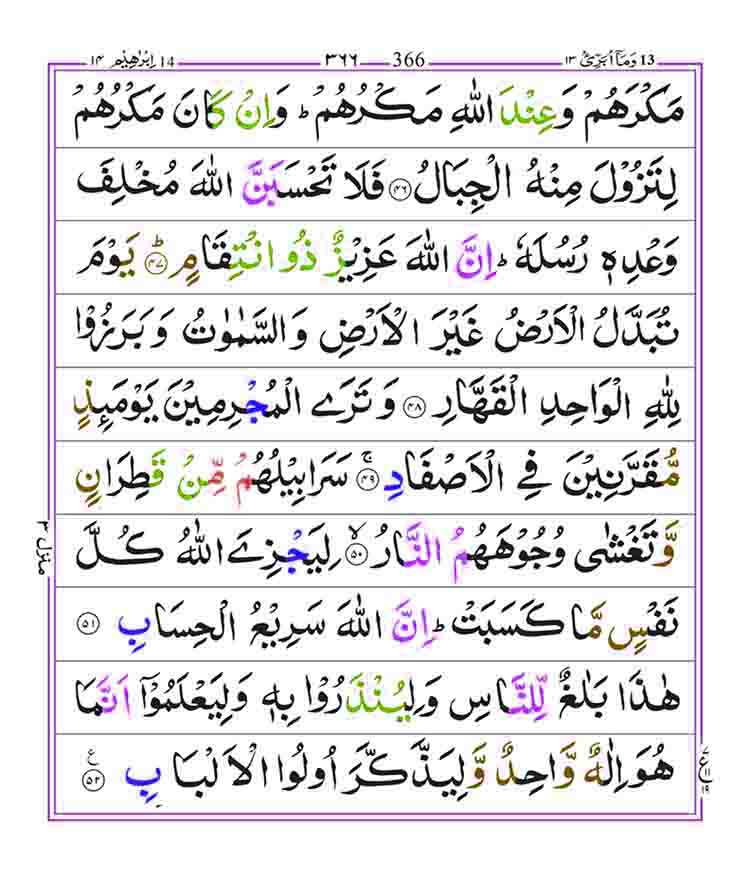 13 وَمَآ اُبَرِّئُ ۱۳ 366 ۳۶۶ 14 اِبْرٰهِيْم ۱۴
مَكْرَهُمْ وَعِنْدَ اللّٰهِ مَكْرُهُمْ ؕ وَاِنْ كَانَ مَكْرُهُمْ
لِتَزُوْلَ مِنْهُ الْجِبَالُ ۴۶ فَلَا تَحْسَبَنَّ اللّٰهَ مُخْلِفَ
وَعْدِهٖ رُسُلَهٗ ؕ اِنَّ اللّٰهَ عَزِيْزٌ ذُو انْتِقَامٍ ؕ ۴۷ يَوْمَ
تُبَدَّلُ الْاَرْضُ غَيْرَ الْاَرْضِ وَالسَّمٰوٰتُ وَبَرَزُوْا
لِلّٰهِ الْوَاحِدِ الْقَهَّارِ ۴۸ وَتَرَى الْمُجْرِمِيْنَ يَوْمَىِٕذٍ
مُّقَرَّنِيْنَ فِى الْاَصْفَادِ ۚ ۴۹ سَرَابِيْلُهُمْ مِّنْ قَطِرَانٍ
وَّتَغْشٰى وُجُوْهَهُمُ النَّارُ ۙ ۵۰ لِيَجْزِىَ اللّٰهُ كُلَّ
نَفْسٍ مَّا كَسَبَتْ ؕ اِنَّ اللّٰهَ سَرِيْعُ الْحِسَابِ ۵۱
هٰذَا بَلٰغٌ لِّلنَّاسِ وَلِيُنْذَرُوْا بِهٖ وَلِيَعْلَمُوْٓا اَنَّمَا
هُوَ اِلٰهٌ وَّاحِدٌ وَّلِيَذَّكَّرَ اُولُوا الْاَلْبَابِ ۵۲ ع
منزل ۳
ع ۷ ۱۱ ۱۹